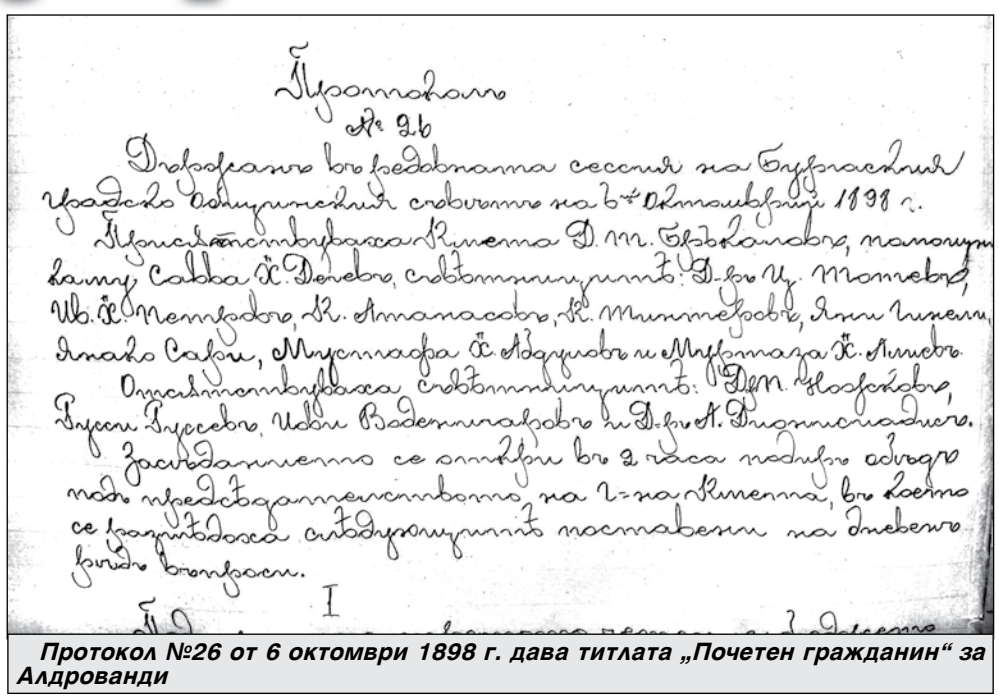 Протоколъ
№ 26
Държанъ въ редовната сессия на Бургаския
градско общински съвѣтъ на 6-й Октомврий 1898 г.
Присѫтствуваха Кмета Д. т. Бръкаловъ, помощни
ка му Савва Х. Дечевъ, съвѣтницитѣ: Д-ръ Ц. Тотевъ,
Ив. Х. Петровъ, К. Атанасовъ, К. Тинтеровъ, Яни Гинели,
Янако Сари, Мустафа Х. Абдуловъ и Муртаза Х. Алиевъ.
Отсѫтствуваха съвѣтницитѣ: Дем.
Русси Руссевъ, Иови Воденичаровъ и Д-ръ А. Дионисиадисъ.
Засѣданието се откри въ 2 часа подиръ обѣдъ
подъ предсѣдателството на г-на Кмета, въ което
се разгледоха слѣдующитѣ поставени на дневенъ
рѣдъ въпроси.
I
Протокол №26 от 6 октомври 1898 г. дава титлата „Почетен гражданин“ за
Алдрованди